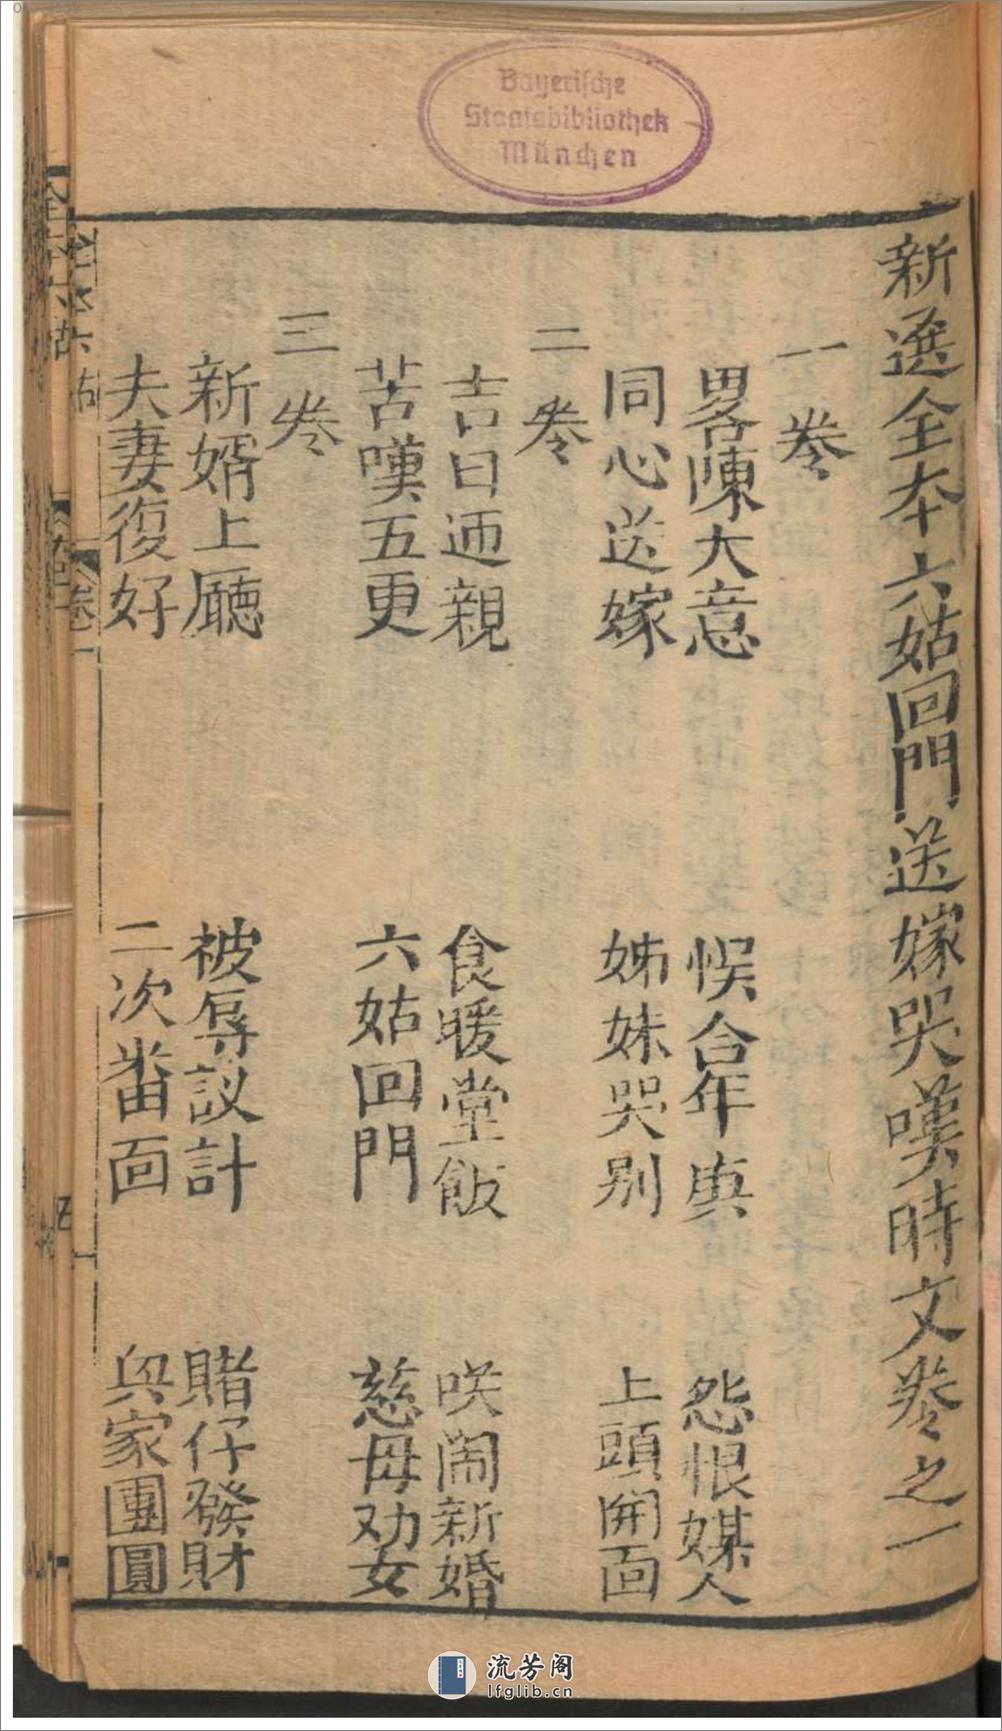 Bayerische
Staatsbibliothek
München
新選全本六姑回門送嫁哭嘆時文卷之一
一卷
畧陳大意 悮合年庚 怨恨媒人
同心送嫁 姊妹哭别 上頭開面
二卷
吉日迊親 食暖堂飯 咲鬧新婚
苦嘆五更 六姑回門 慈母劝女
三卷
新婿上廳 被辱議計 賭仔發財
夫妻復好 二次番面 與家團圓
流芳阁
lfglib.cn